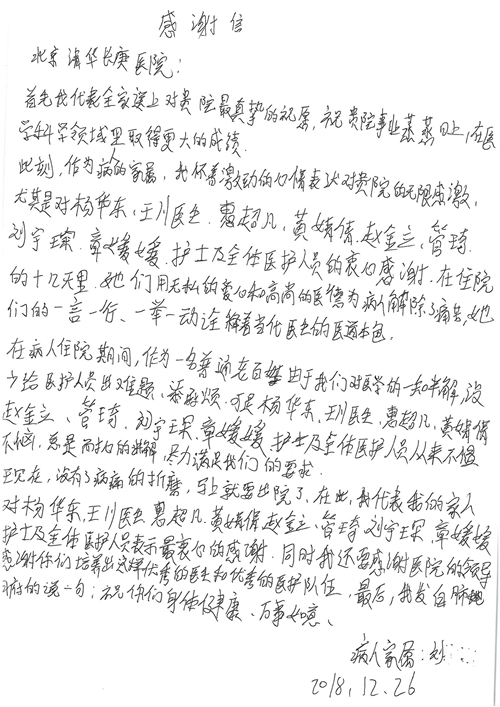 感谢信
北京清华长庚医院:
首先我代表全家谨上对贵院最真挚的祝愿,祝贵院事业蒸蒸日上,在医
学科学领域里取得更大的成绩.
此刻,作为病人的家属,我怀着激动的心情表达对贵院的无限感激,
尤其是对杨华东,王川医生.惠超凡,黄婧倩.赵金立,管琦.
刘宇琛.章媛媛.护士及全体医护人员的衷心感谢.在住院
的十几天里.她们用无私的爱心和高尚的医德为病人解除了痛苦,她
们的一言一行、一举一动诠释着当代医生的医道本色.
在病人住院期间,作为一名普通老百姓由于我们对医学的一知半解,没
少给医护人员出难题、添麻烦.可是杨华东,王川医生,惠超凡,黄婧倩
赵金立、管琦、刘宇琛,章媛媛护士及全体医护人员从来不愠
不恼.总是耐心的讲解,尽力满足我们的要求.
现在,没有了病痛的折磨,马上就要出院了,在此,我代表我的家人
对杨华东,王川医生惠超凡.黄婧倩赵金立、管琦刘宇琛,章媛媛
护士及全体医护人员表示最衷心的感谢.同时我还要感谢医院的领导
感谢你们培养出这样优秀的医生和优秀的医护队伍.最后,我发自肺
腑的说一句:祝你们身体健康、万事如意、
病人家属:刘
2018.12.26